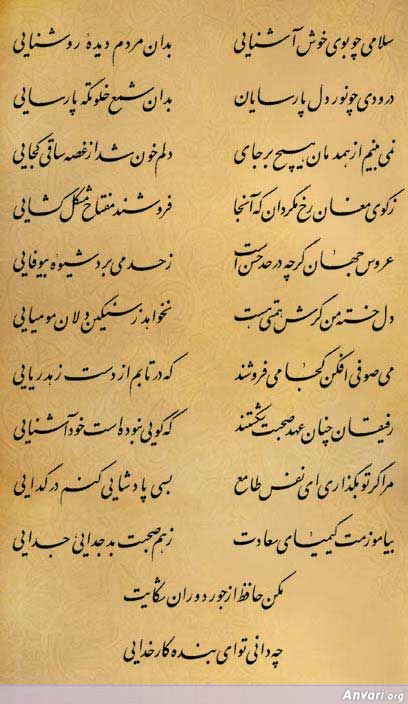 سلامی چو بوی خوش آشنایی بدان مردم دیده روشنایی
درودی چو نور دل پارسایان بدان شمع خلوتگه پارسایی
نمی بینم از همدمان هیچ بر جای دلم خون شد از غصه ساقی کجایی
ز کوی مغان رخ مگردان که آنجا فروشند مفتاح مشکل گشایی
عروس جهان گرچه در حد حسن است ز حد می برد شیوه بیوفایی
دل خسته من گرش همتی هست نخواهد ز سنگین دلان مومیایی
می صوفی افکن کجا می فروشند که در تابم از دست زهد ریایی
رفیقان چنان عهد صحبت شکستند که گویی نبوده است خود آشنایی
مرا گر تو بگذاری ای نفس طامع بسی پادشایی کنم در گدایی
بیاموزمت کیمیای سعادت ز هم صحبت بد جدایی جدایی
مکن حافظ از جور دوران شکایت
چه دانی تو ای بنده کار خدایی
Anvari.org